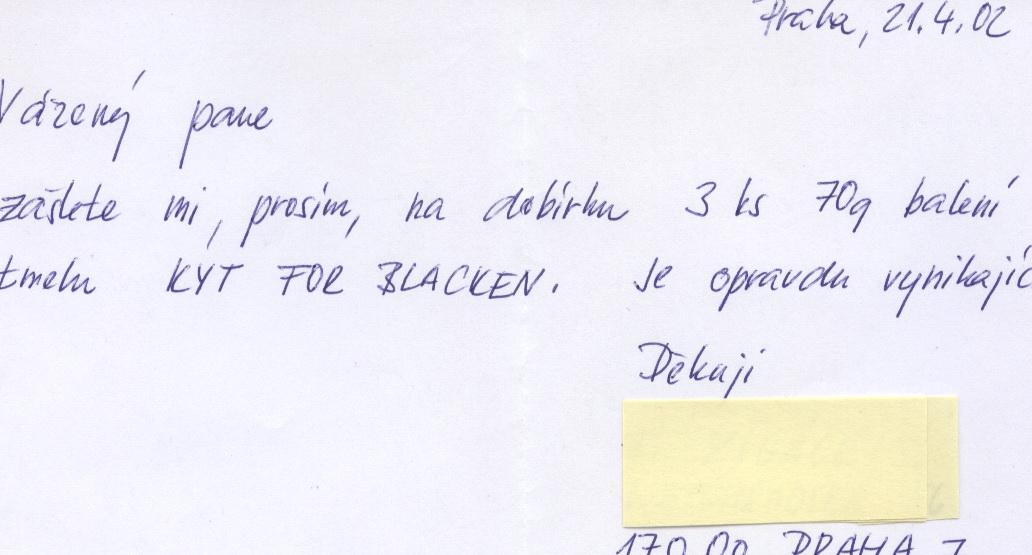 Praha, 21.4.02
Vázený pane
zášlete mi, prosim, na dobírku 3 ks 70g balení
tmelu KYT FOR BLACKEN. Je opravdu vynikajíc
Děkuji
170 00 PRAHA 7